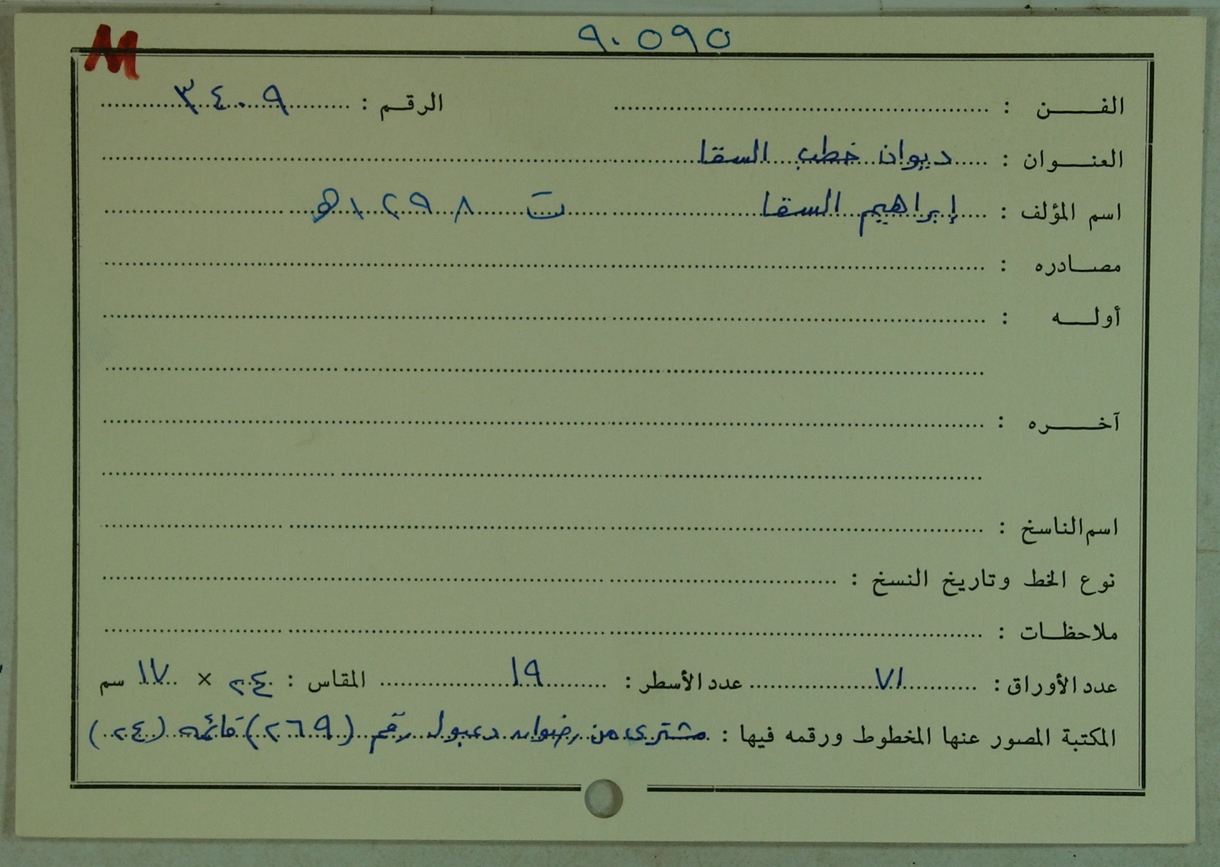 M
٩٠٥٩٥
الفن : الرقم : ٣٤٠٩
العنوان : ديوان خطب السقا
اسم المؤلف : إبراهيم السقا ت ١٢٩٨ هـ
مصادره :
أوله :
آخره :
اسم الناسخ :
نوع الخط وتاريخ النسخ :
ملاحظات :
عدد الأوراق : ٧١ عدد الأسطر : ١٩ المقاس : ٢٤ × ١٧ سم
المكتبة المصور عنها المخطوط ورقمه فيها : مشترى من رضوان دعبول رقم (٢٦٩) قائمة (٢٤)